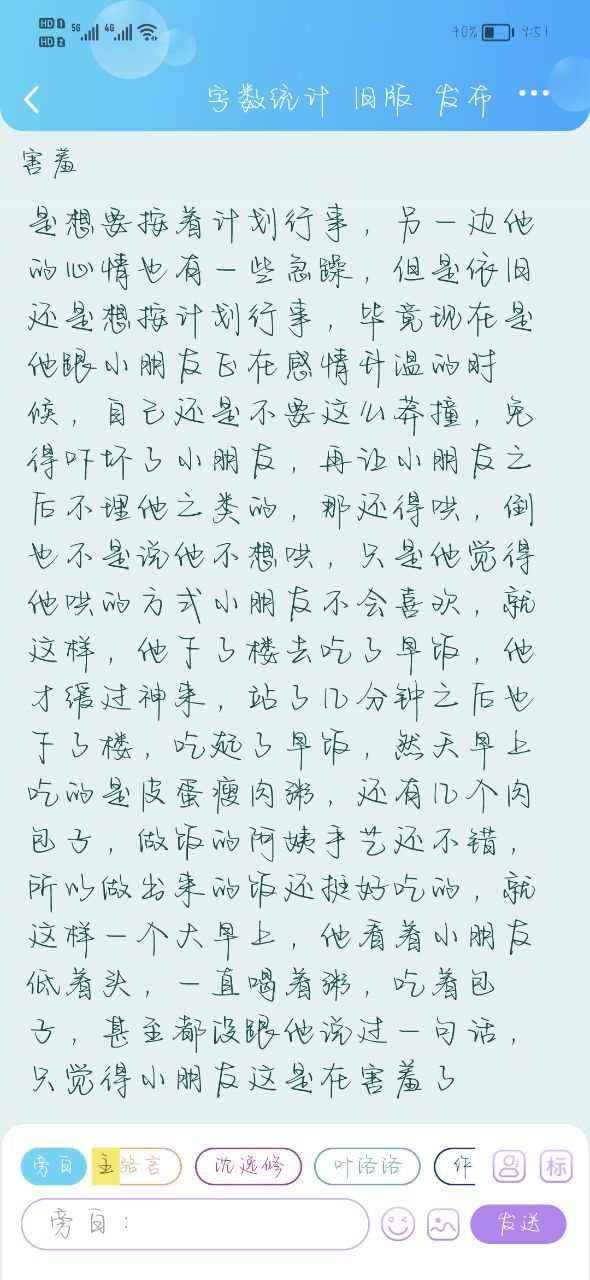 HD 1 5G 4G 40% 9:51
HD 2
字数统计 旧版 发布
害羞
是想要按着计划行事，另一边他
的心情也有一些急躁，但是依旧
还是想按计划行事，毕竟现在是
他跟小朋友正在感情升温的时
候，自己还是不要这么莽撞，免
得吓坏了小朋友，再让小朋友之
后不理他之类的，那还得哄，倒
也不是说他不想哄，只是他觉得
他哄的方式小朋友不会喜欢，就
这样，他下了楼去吃了早饭，他
才缓过神来，站了几分钟之后也
下了楼，吃起了早饭，然天早上
吃的是皮蛋瘦肉粥，还有几个肉
包子，做饭的阿姨手艺还不错，
所以做出来的饭还挺好吃的，就
这样一个大早上，他看着小朋友
低着头，一直喝着粥，吃着包
子，甚至都没跟他说过一句话，
只觉得小朋友这是在害羞了
旁白 主 骆言 沈逸修 叶洛洛 作 标
旁白： 发送